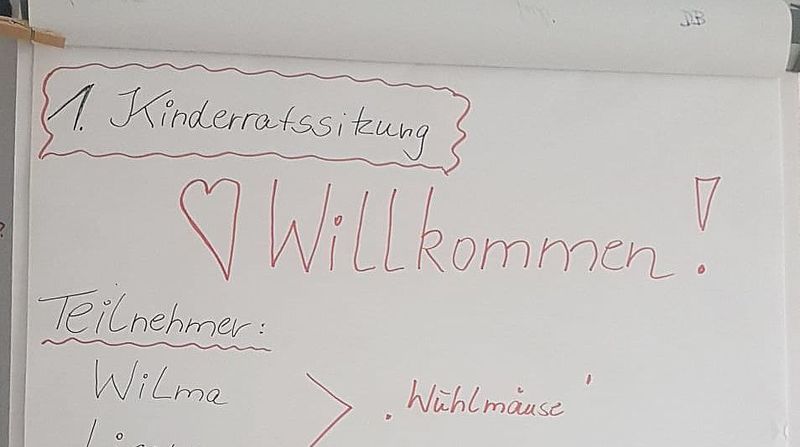 1. Kinderratssitzung
Willkommen!
Teilnehmer:
Wilma
"Wühlmäuse"